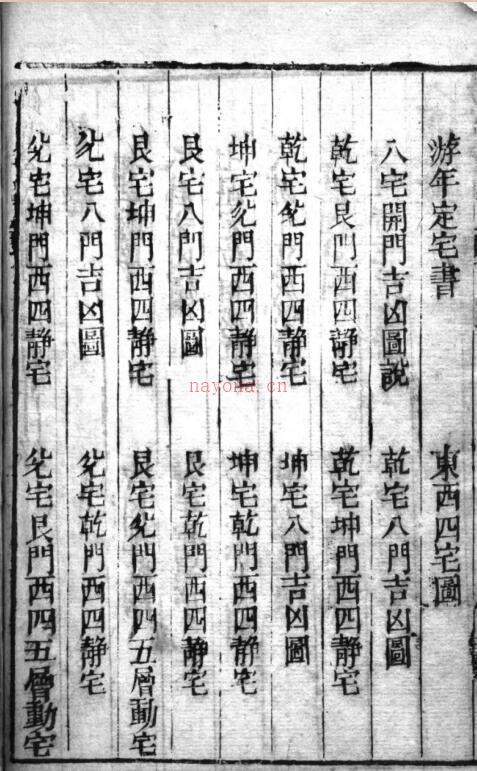 游年定宅書 東西四宅圖
八宅開門吉凶圖說 乾宅八門吉凶圖
乾宅艮門西四靜宅 乾宅坤門西四靜宅
乾宅兊門西四靜宅 坤宅八門吉凶圖
坤宅兊門西四靜宅 坤宅乾門西四靜宅
艮宅八門吉凶圖 艮宅乾門西四靜宅
艮宅坤門西四靜宅 艮宅兊門西四五層動宅
兊宅八門吉凶圖 兊宅乾門西四靜宅
兊宅坤門西四靜宅 兊宅艮門西四五層動宅
nayona.cn